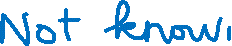 Not know,